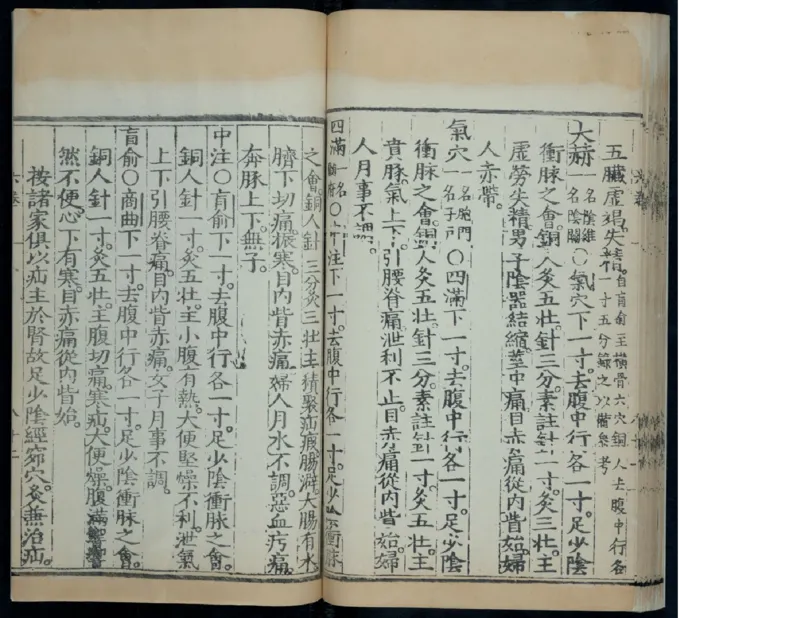 五臟虛竭失精。自肓俞至橫骨六穴銅人去腹中行各一寸五分錄之以備參考
大赫一名陰維一名陰關○氣穴下一寸。去腹中行各一寸。足少陰
衝脉之會。銅人灸五壯。針三分。素註針一寸。灸三壯。主
虛勞失精。男子陰器結縮。莖中痛。目赤痛從內眥始。婦
人赤帶。
氣穴一名胞門一名子戶○四滿下一寸。去腹中行各一寸。足少陰
衝脉之會。銅人灸五壯。針三分。素註針一寸。灸五壯。主
賁豚氣上下引腰脊痛。泄利不止。目赤痛從內眥始。婦
人月事不調。
四滿一名髓府○中注下一寸。去腹中行各一寸。足少陰衝脉
之會。銅人針三分灸三壯。主積聚疝瘕。腸澼。大腸有水
臍下切痛。振寒。目內眥赤痛。婦人月水不調。惡血㽲痛。
奔豚上下。無子。
中注○肓俞下一寸。去腹中行各一寸。足少陰衝脉之會。
銅人針一寸。灸五壯。主小腹有熱。大便堅燥不利。泄氣
上下引腰脊痛。目內眥赤痛。女子月事不調。
肓俞○商曲下一寸。去腹中行各一寸。足少陰衝脉之會。
銅人針一寸。灸五壯。主腹切痛。寒疝。大便燥。腹滿響響
然不便。心下有寒。目赤痛從內眥始。
按諸家俱以疝主於腎。故足少陰經窌穴灸兼治疝。